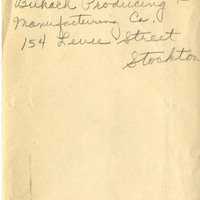 Buhach Producing &
Manufacturing Co.
154 Levee Street
Stockton